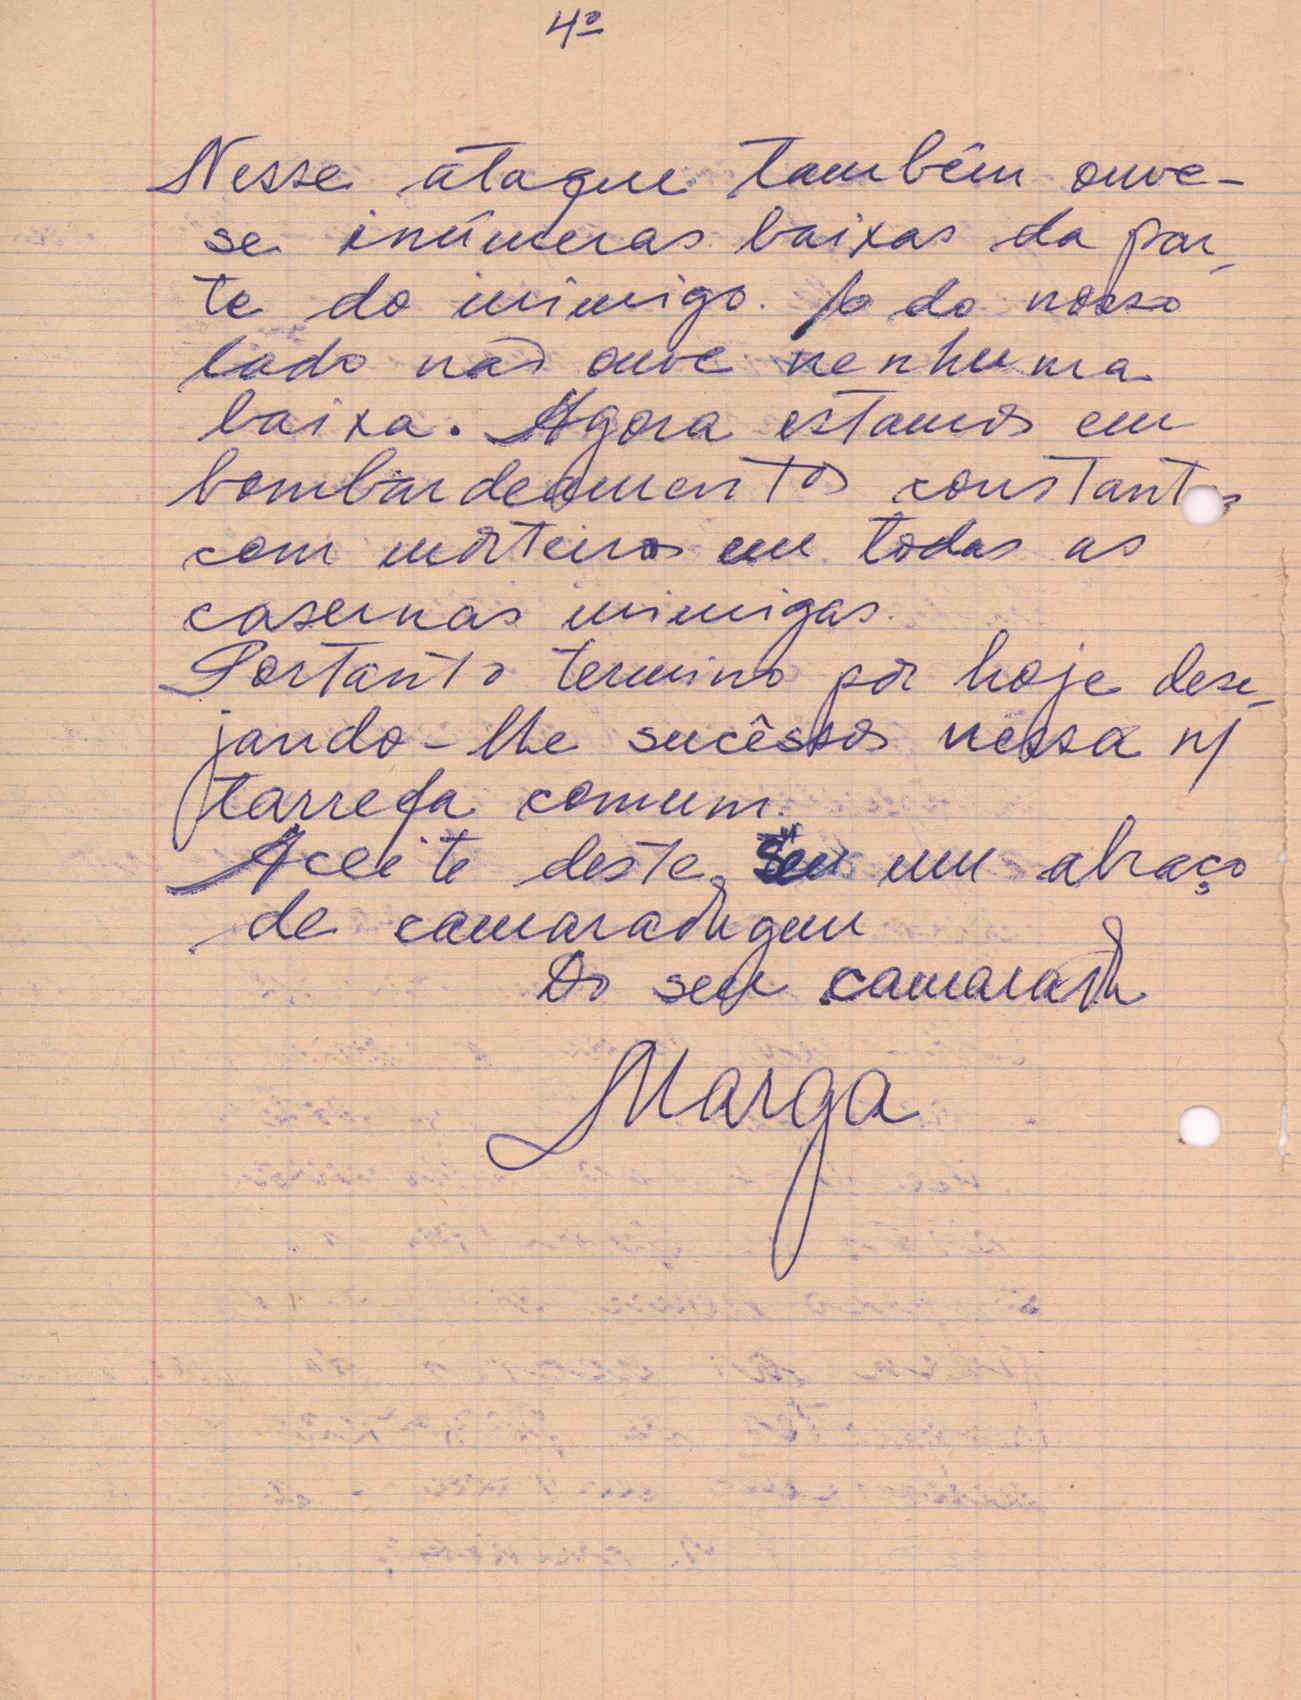 4º
Nesse ataque também ouve-
se inúmeras baixas da par-
te do inimigo. Jo do nosso
lado não ouve nenhuma
baixa. Agora estamos em
bombardeamentos constantes
com morteiros em todas as
casernas inimigas.
Portanto termino por hoje dese-
jando-lhe sucêssos nessa n/
tarrefa comum.
Aceite deste seu um abraço
de camaradagem
Do seu camarada
Marga